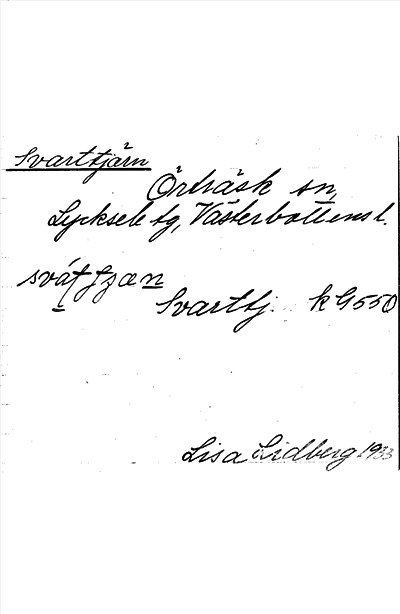 Svarttjärn
Örträsk sn,
Lycksele tg, Västerbottens l.
Svarttj. kG550
Lisa Lidberg 1933